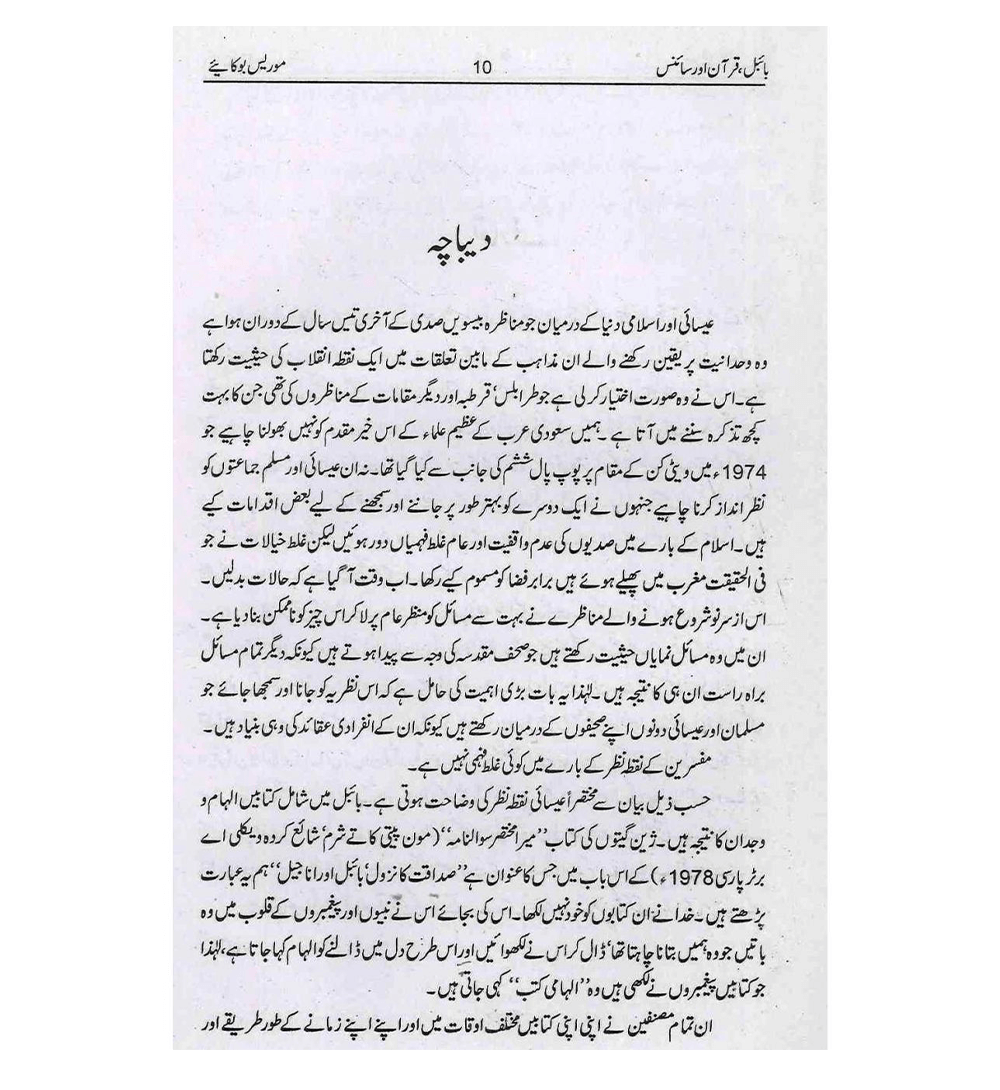 بائبل، قرآن اور سائنس 10 موریس بوکائیے
دیباچہ
عیسائی اور اسلامی دنیا کے درمیان جو مناظرہ بیسویں صدی کے آخری تیس سال کے دوران ہوا ہے
وہ وحدانیت پر یقین رکھنے والے ان مذاہب کے مابین تعلقات میں ایک نقطہ انقلاب کی حیثیت رکھتا
ہے۔ اس نے وہ صورت اختیار کر لی ہے جو طرابلس’ قرطبہ اور دیگر مقامات کے مناظروں کی تھی جن کا بہت
کچھ تذکرہ سننے میں آتا ہے۔ ہمیں سعودی عرب کے عظیم علماء کے اس خیر مقدم کو نہیں بھولنا چاہیے جو
1974ء میں ویٹی کن کے مقام پر پوپ پال ششم کی جانب سے کیا گیا تھا۔ نہ ان عیسائی اور مسلم جماعتوں کو
نظر انداز کرنا چاہیے جنہوں نے ایک دوسرے کو بہتر طور پر جاننے اور سمجھنے کے لیے بعض اقدامات کیے
ہیں۔ اسلام کے بارے میں صدیوں کی عدم واقفیت اور عام غلط فہمیاں دور ہوئیں لیکن غلط خیالات نے جو
فی الحقیقت مغرب میں پھیلے ہوئے ہیں برابر فضا کو مسموم کیے رکھا۔ اب وقت آ گیا ہے کہ حالات بدلیں۔
اس از سر نو شروع ہونے والے مناظرے نے بہت سے مسائل کو منظر عام پر لا کر اس چیز کو ناممکن بنا دیا ہے۔
ان میں وہ مسائل نمایاں حیثیت رکھتے ہیں جو صحف مقدسہ کی وجہ سے پیدا ہوتے ہیں کیونکہ دیگر تمام مسائل
براہ راست ان ہی کا نتیجہ ہیں۔ لہٰذا یہ بات بڑی اہمیت کی حامل ہے کہ اس نظریہ کو جانا اور سمجھا جائے جو
مسلمان اور عیسائی دونوں اپنے صحیفوں کے درمیان رکھتے ہیں کیونکہ ان کے انفرادی عقائد کی وہی بنیاد ہیں۔
مفسرین کے نقطہ نظر کے بارے میں کوئی غلط فہمی نہیں ہے۔
حسب ذیل بیان سے مختصراً عیسائی نقطہ نظر کی وضاحت ہوتی ہے۔ بائبل میں شامل کتابیں الہام و
وجدان کا نتیجہ ہیں۔ ژین گیتوں کی کتاب ’’میرا مختصر سوالنامہ‘‘ (مون پیتی کاتے شرم’ شائع کردہ ویکلی اے
برٹر پارسی 1978ء) کے اس باب میں جس کا عنوان ہے ’’صداقت کا نزول’ بائبل اور اناجیل‘‘ ہم یہ عبارت
پڑھتے ہیں۔ خدا نے ان کتابوں کو خود نہیں لکھا۔ اس کی بجائے اس نے نبیوں اور پیغمبروں کے قلوب میں وہ
باتیں جو وہ ہمیں بتانا چاہتا تھا’ ڈال کر اس نے لکھوائیں اور اس طرح دل میں ڈالنے کو الہام کہا جاتا ہے، لہٰذا
جو کتابیں پیغمبروں نے لکھی ہیں وہ ’’الہامی کتب‘‘ کہی جاتی ہیں۔
ان تمام مصنفین نے اپنی اپنی کتابیں مختلف اوقات میں اور اپنے اپنے زمانے کے طور طریقے اور